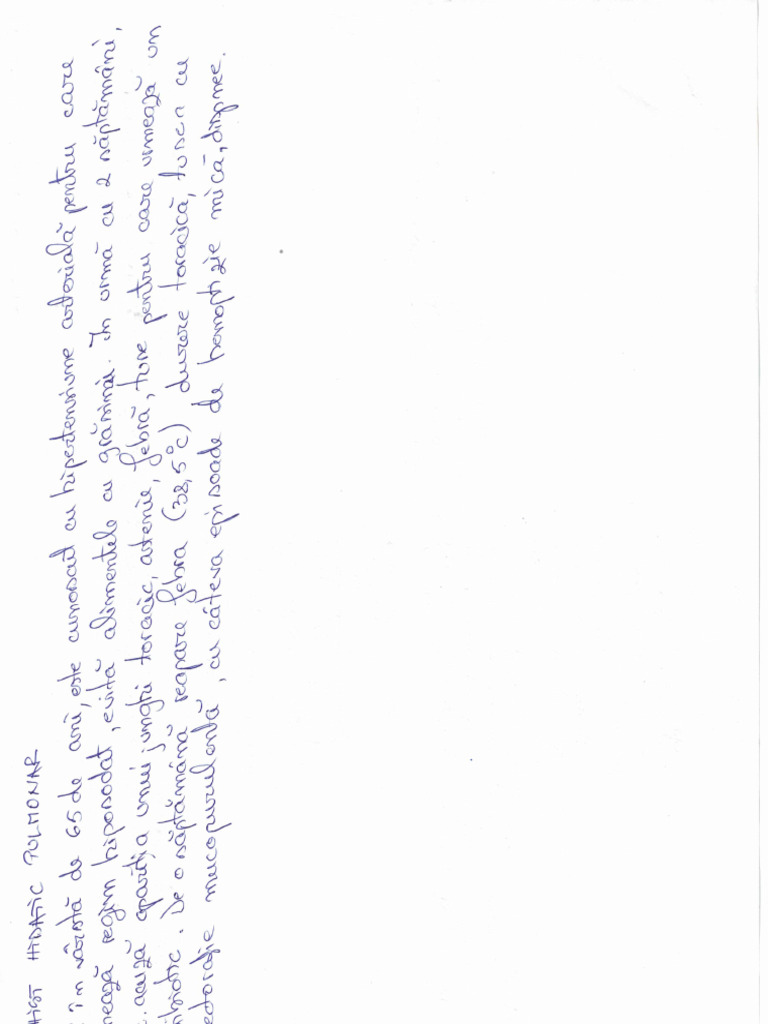 HIST HIDATIC PULMONAR
în vârstă de 65 de ani, este cunoscut cu hipertensiune arterială pentru care
mează regim hiposodat, evită alimentele cu grăsimi. În urmă cu 2 săptămâni,
c. acuză apariția unui junghi toracic, astenie, febră, tuse pentru care urmează un
tibiotic. De o săptămână reapare febra (38,5°C) durere toracică, tusea cu
ectorație mucopurulentă, cu câteva episoade de hemoptizie mică, dispnee.